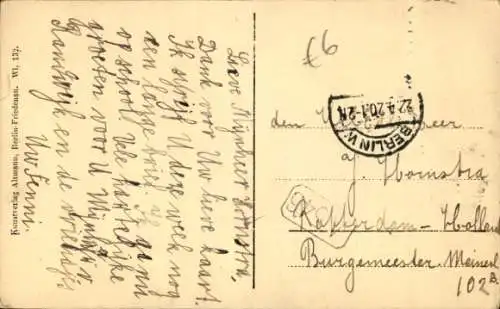 Kunstverlag Altmann, Berlin-Friedenau. WI. 132.
Lieve Mijnheer
Dank voor Uw lieve kaart.
Ik schrijf U deze week nog
een lange brief. ga nu
op school. Vele hartelijke
groeten voor U Mijnheer
en de
Uw Fenni.
£6
BERLIN W.
22.4.20.1-2N
den
a/. Hoinstra
Rotterdam - Holland
Burgemeester Meinesz
102B